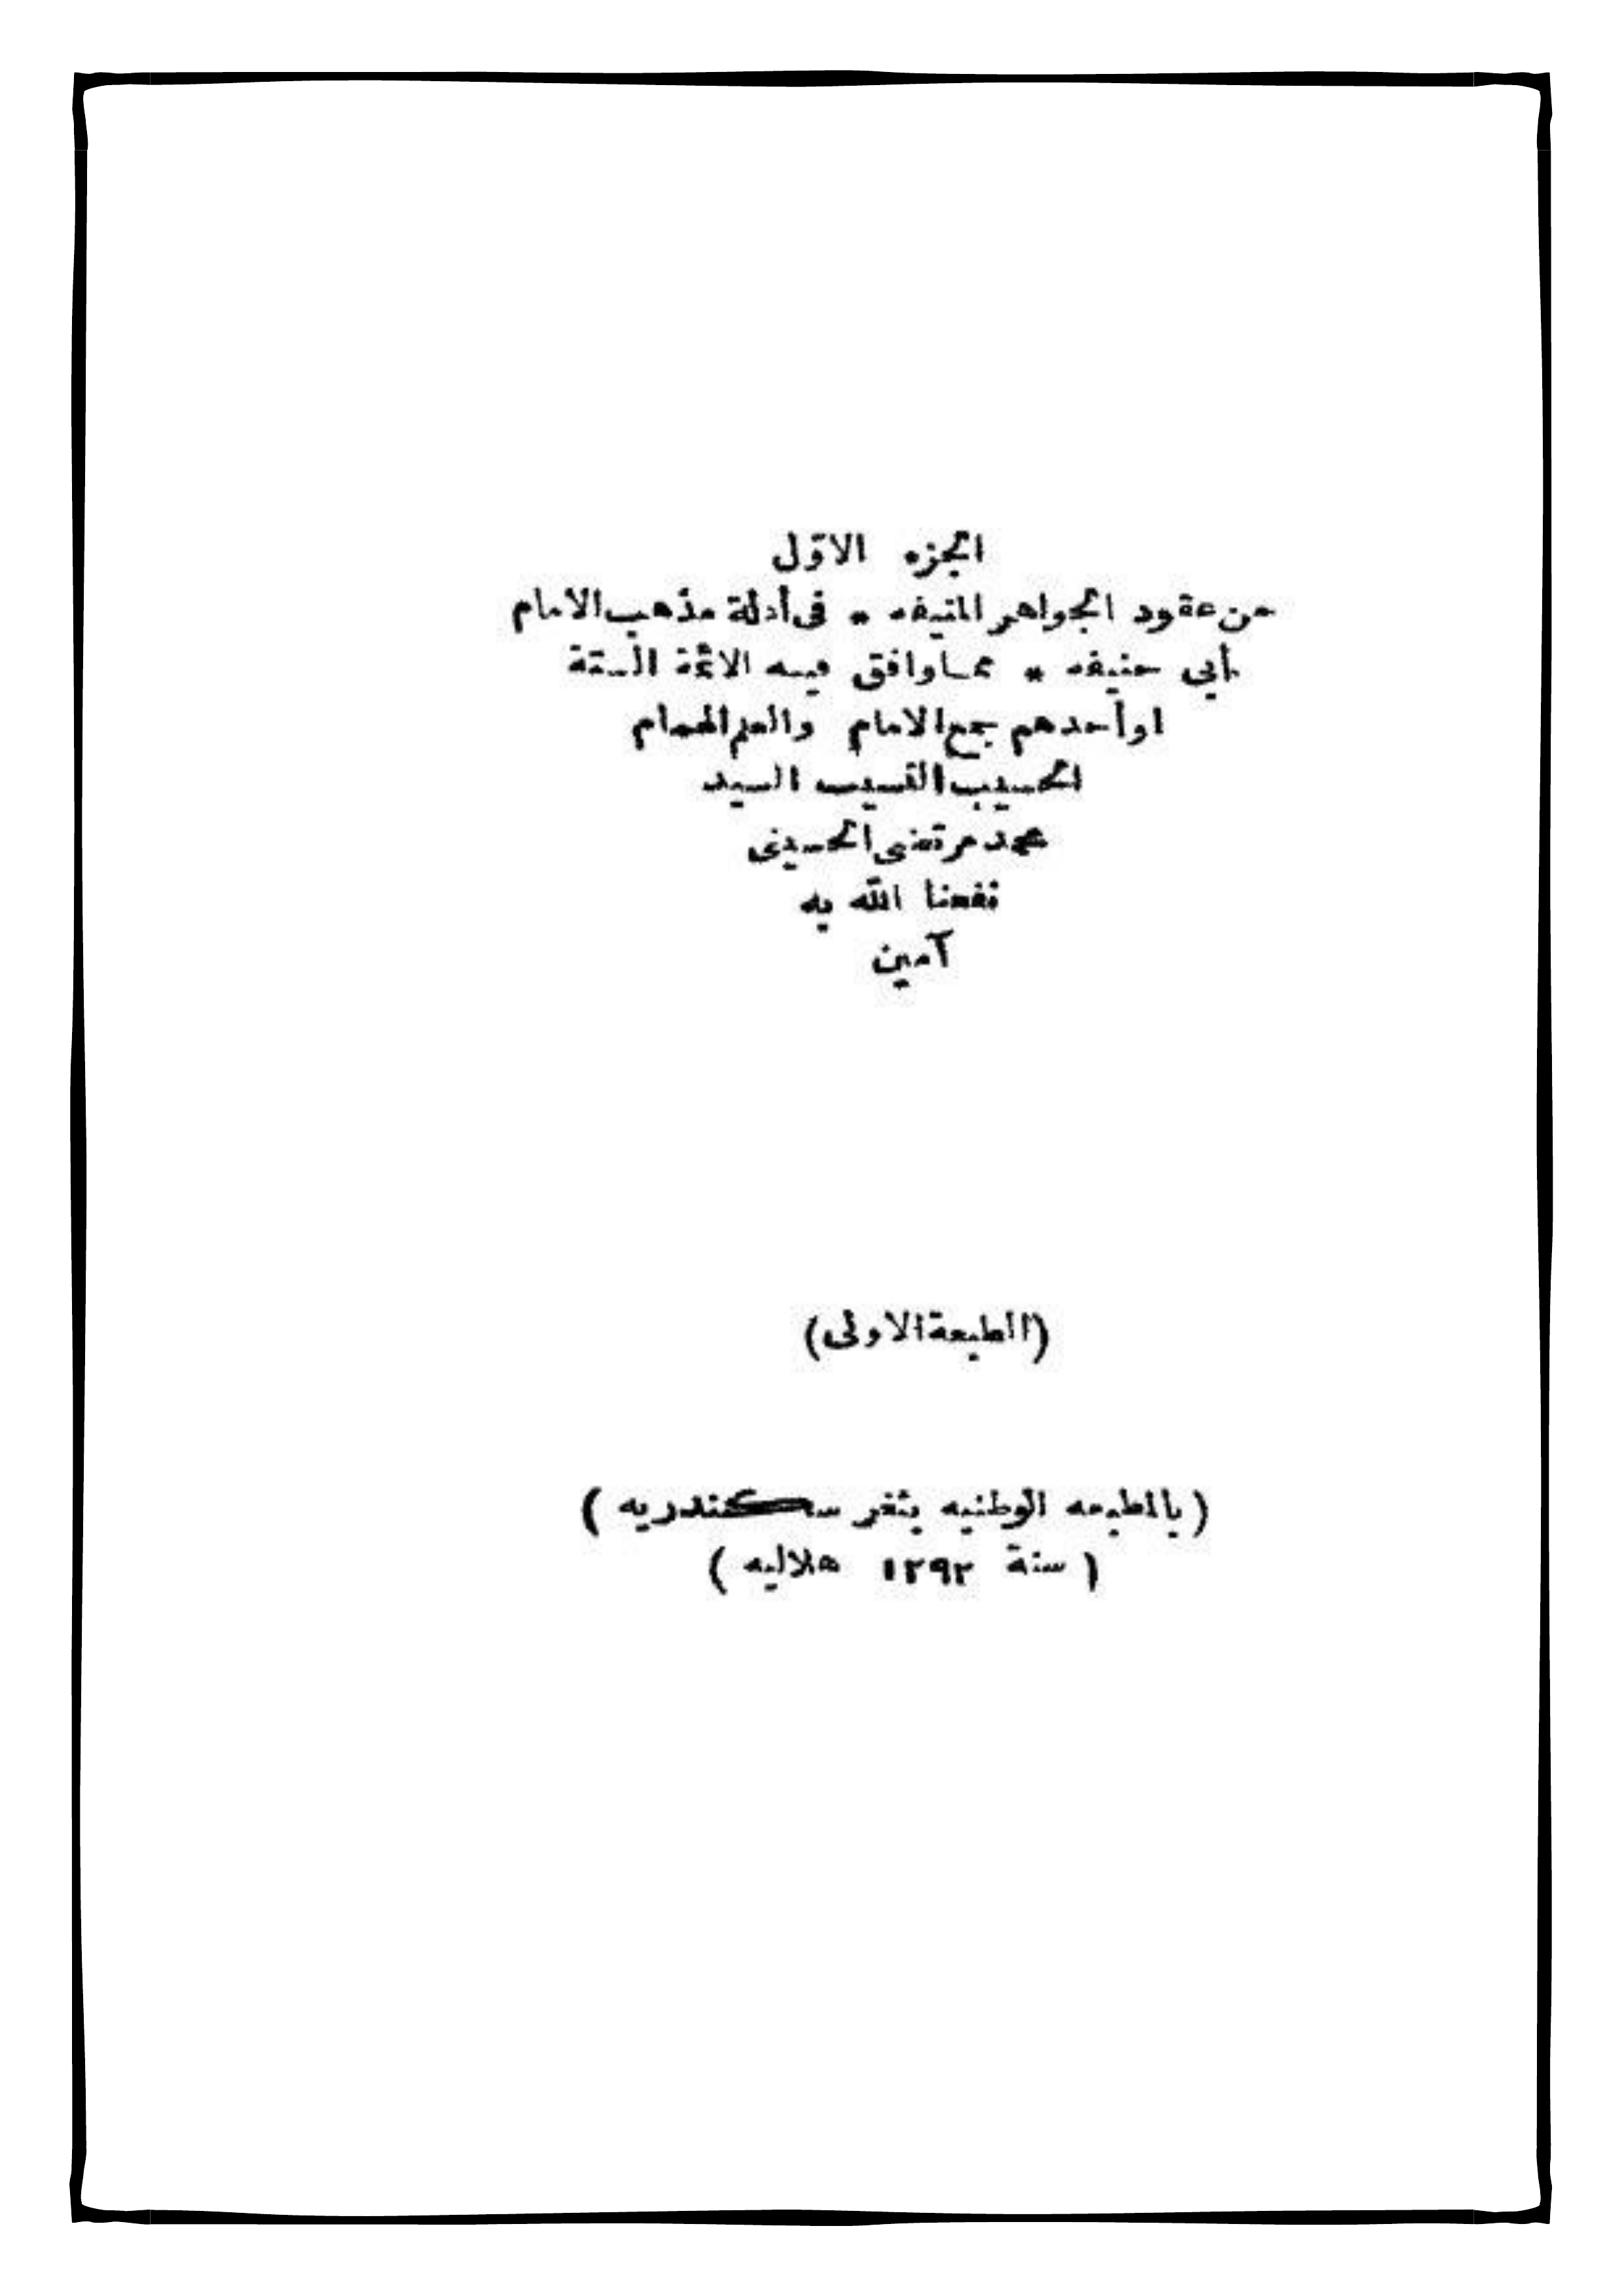 الجزء الاوّل
من عقود الجواهر المنيفه * فى أدلة مذهب الامام
أبى حنيفه * مما وافق فيه الائمة الستة
او أحدهم جمع الامام والعلم الهمام
الحسيب النسيب السيد
محمد مرتضى الحسينى
نفعنا الله به
آمين
(الطبعة الاولى)
( بالمطبعه الوطنيه بثغر سكندريه )
( سنة ١٢٩٢ هلاليه )